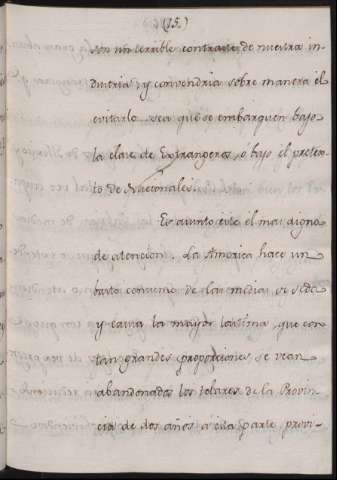 (15.)
son un terrible contraste de nuestra in-
dustria y convendria sobre manera el
evitarlo sea que se embarquen bajo
la clase de Extrangeros, ó bajo el pretex-
to de Nacionales.
Es asunto este el mas digno
de atencion. La America hace un
basto consumo de las medias de seda
y causa la mayor lastima, que con
tan grandes proporciones se vean
abandonados los telares de la Provin-
cia de dos años a esta parte provi-